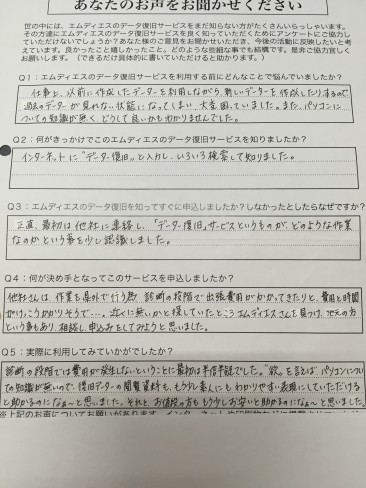 あなたのお声をお聞かせください
世の中には、エムディエスのデータ復旧サービスをまだ知らない方がたくさんいらっしゃいます。
その方達にエムディエスのデータ復旧サービスを良く知っていただくためにアンケートにご協力し
ていただけないでしょうか?あなた様のご意見をお聞かせいただき、今後の活動に反映したいと考
えています。良かったこと嬉しかったこと。どのような些細な事でも結構です。是非ご協力宜しく
お願いします。(できるだけ具体的に書いていただけると助かります。)
Q1:エムディエスのデータ復旧サービスを利用する前にどんなことで悩んでいましたか?
仕事上、以前に作成したデータを利用しながら、新しいデータを作成したりするので
過去のデータが見れない状態になってしまい、大変困っていました。また、パソコンに
ついての知識が無く、どうして良いかもわかりませんでした。
Q2:何がきっかけでこのエムディエスのデータ復旧サービスを知りましたか?
インターネットに"データ復旧"と入力し、いろいろ検索して知りました。
Q3:エムディエスのデータ復旧を知ってすぐに申込しましたか?しなかったとしたらなぜですか?
正直、最初は他社に連絡し、「データー復旧」サービスというものが、どのような作業
なのかという事を少し認識しました。
Q4:何が決め手となってこのサービスを申込しましたか?
他社さんは、作業を県外で行う為、診断の段階で出張費用がかかってきたりと、費用と時間
がけっこうかかりそうで…。近くに無いかと探していたところエムディエスさんを見つけ、地元の方
という事もあり、相談し、申込みをしてみようと思いました。
Q5:実際に利用してみていかがでしたか?
診断の段階では費用が発生しないということに最初は半信半疑でした。"欲"を言えば、パソコンについ
ての知識が無いので、復旧データーの閲覧資料も、もう少し素人にもわかりやすい表現にしていただける
と助かるのになぁ〜と思いました。それと、お値段の方ももう少しお安いと助かるのになぁ〜と思いました。
※上記のお声についてお願いがあります。